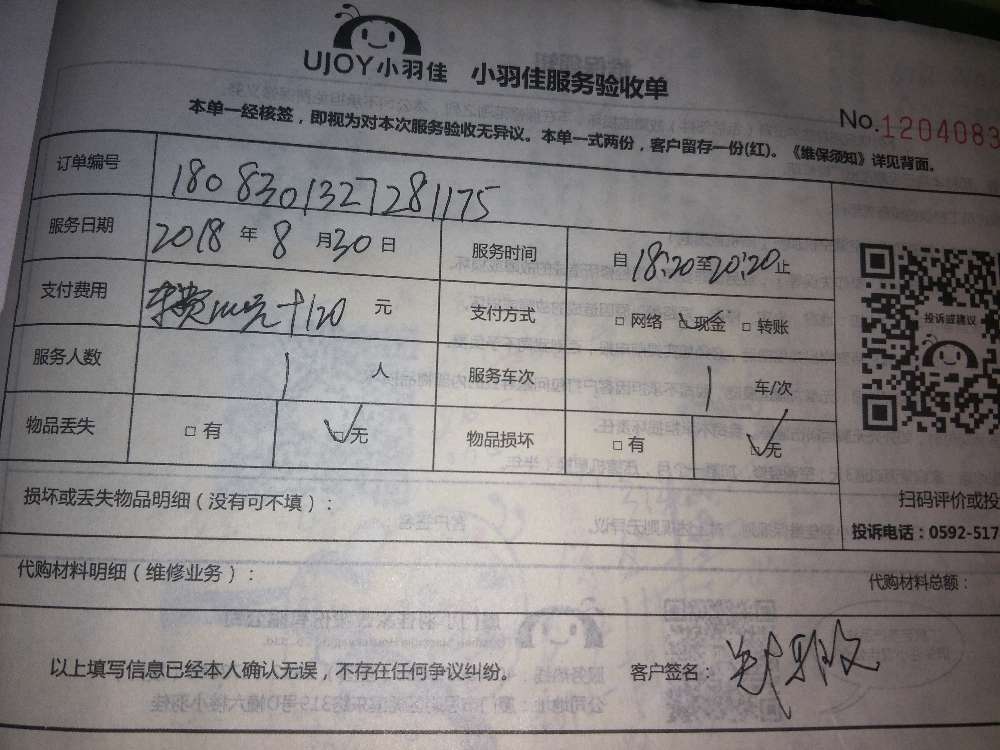 UJOY小羽佳 小羽佳服务验收单
No.1204083
本单一经核签，即视为对本次服务验收无异议。本单一式两份，客户留存一份(红)。《维保须知》详见背面。
订单编号 1808301327281175
服务日期 2018 年 8 月 30 日 服务时间 自 18:20 至 20:20 止
支付费用 车费100元+120 元 支付方式 □ 网络 □ 现金 □ 转账
投诉或建议
服务人数 1 人 服务车次 1 车/次
物品丢失 □ 有 □ 无 物品损坏 □ 有 □ 无
损坏或丢失物品明细（没有可不填）：
扫码评价或投
投诉电话：0592-517
代购材料明细（维修业务）：
代购材料总额：
以上填写信息已经本人确认无误，不存在任何争议纠纷。 客户签名：